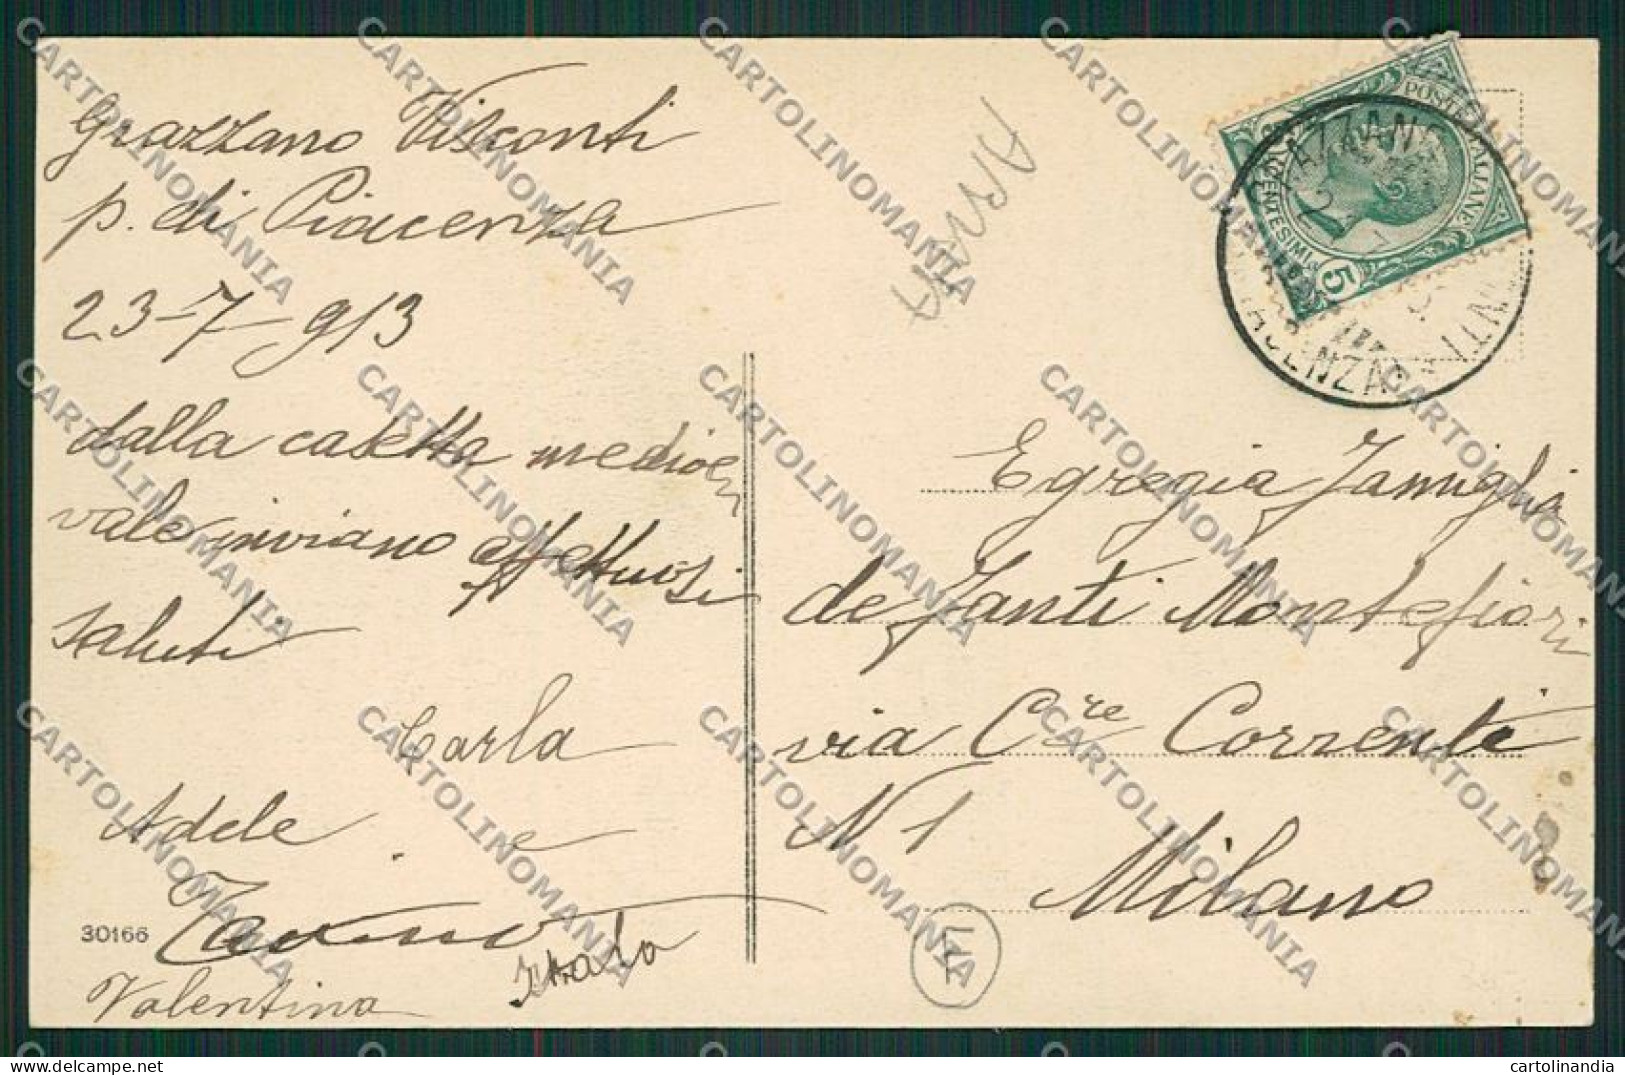 Grazzano Visconti
p. di Piacenza
23-7-913
dalla casetta medioe
vale inviano affettuosi
saluti
Carla
Adele e
Valentina
Italo
30166
POSTE ITALIANE
5
Egregia Famiglia
de Fanti Montefiori
via C.re Correnti
N 1
Milano
CARTOLINOMANIA
cartolinandia